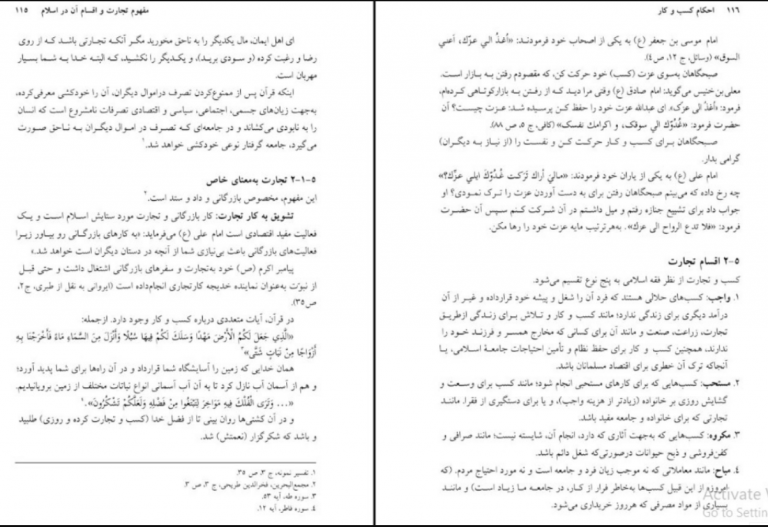 مفهوم تجارت و اقسام آن در اسلام ۱۱۵
ای اهل ایمان، مال یکدیگر را به ناحق مخورید مگر آنکه تجارتی باشد که از روی
رضا و رغبت کرده (و سودی برید)، و یکدیگر را نکشید، که البته خدا به شما بسیار
مهربان است.
اینکه قرآن پس از ممنوع‌کردن تصرف دراموال دیگران، آن را خودکشی معرفی‌کرده،
به‌جهت زیان‌های جسمی، اجتماعی، سیاسی و اقتصادی تصرفات نامشروع است که انسان
را به نابودی می‌کشاند و در جامعه‌ای که تصرف در اموال دیگران به ناحق صورت
می‌گیرد، جامعه گرفتار نوعی خودکشی خواهد شد.۱
۲-۱-۵ تجارت به‌معنای خاص
این مفهوم، مخصوص بازرگانی و داد و ستد است.۲
تشویق به کار تجارت: کار بازرگانی و تجارت مورد ستایش اسلام است و یک
فعالیت مفید اقتصادی است امام علی (ع) می‌فرماید: «به کارهای بازرگانی رو بیاور زیرا
فعالیت‌های بازرگانی باعث بی‌نیازی شما از آنچه در دستان دیگران است خواهد شد.»
پیامبر اکرم (ص) خود به‌تجارت و سفرهای بازرگانی اشتغال داشت و حتی قبل
از نبوّت به‌عنوان نماینده خدیجه کارتجاری انجام‌داده است (ایروانی به نقل از طبری، ج۲،
ص ۳۵).
در قرآن، آیات متعددی درباره کسب و کار وجود دارد. ازجمله:
«الَّذِي جَعَلَ لَكُمُ الْأَرْضَ مَهْدًا وَسَلَكَ لَكُمْ فِيهَا سُبُلًا وَأَنْزَلَ مِنَ السَّمَاءِ مَاءً فَأَخْرَجْنَا بِهِ
أَزْوَاجًا مِنْ نَبَاتٍ شَتَّى»۳
همان خدایی که زمین را آسایشگاه شما قرارداد و در آن راه‌ها برای شما پدید آورد؛
و هم از آسمان آب نازل کرد تا به آن آب آسمانی انواع نباتات مختلف از زمین برویانیدیم.
«... وَتَرَى الْفُلْكَ فِيهِ مَوَاخِرَ لِتَبْتَغُوا مِنْ فَضْلِهِ وَلَعَلَّكُمْ تَشْكُرُونَ».۴
و در آن کشتی‌ها روان بینی تا از فضل خدا (کسب و تجارت کرده و روزی) طلبید
و باشد که شکرگزار (نعمتش) شد.
۱. تفسیر نمونه، ج ۳، ص ۳۵.
۲. مجمع‌البحرین، فخرالدین طریحی، ج ۳، ص ۳.
۳. سوره طه، آیه ۵۳.
۴. سوره فاطر، آیه ۱۲.
۱۱۶ احکام کسب و کار
امام موسی بن جعفر (ع) به یکی از اصحاب خود فرمودند: «أغدُ الي عزِّك، أعني
السوق» (وسائل، ج ۱۲، ص ۴).
صبحگاهان به‌سوی عزت (کسب) خود حرکت کن، که مقصودم رفتن به بازار است.
معلی‌بن‌خنیس می‌گوید: امام صادق (ع) وقتی مرا دید که از رفتن به بازارکوتاهی کرده‌ام،
فرمود: «أغدُ الي عزِّك». ای عبدالله عزت خود را حفظ کن پرسیده شد: عزت چیست؟ آن
حضرت فرمود: «غُدُوُّك الي سوقك، و اكرامك نفسك» (کافی، ج ۵، ص ۸۸)
صبحگاهان برای کسب و کار حرکت کن و نفست را (از نیاز به دیگران)
گرامی بدار.
امام علی (ع) به یکی از یاران خود فرمودند: «ماليَ أراك تَرَكت غُدُوَّكَ الي عزِّك؟»
چه رخ داده که می‌بینم صبحگاهان رفتن برای به دست آوردن عزت را ترک نمودی؟ او
جواب داد برای تشییع جنازه رفتم و میل داشتم در آن شرکت کنم سپس آن حضرت
فرمود: «فلا تدع الرواح الي عزك». به‌هرترتیب مایه عزت خود را رها مکن.
۲-۵ اقسام تجارت
کسب و تجارت از نظر فقه اسلامی به پنج نوع تقسیم می‌شود.
۱. واجب: کسب‌های حلالی هستند که فرد آن را شغل و پیشه خود قرارداده و غیر از آن
درآمد دیگری برای زندگی ندارد؛ مانند کسب و کار و تلاش برای زندگی ازطریق
تجارت، زراعت، صنعت و مانند آن برای کسانی که مخارج همسر و فرزند خود را
ندارند، همچنین کسب و کار برای حفظ نظام و تأمین احتیاجات جامعهٔ اسلامی، با
آنجاکه ترک آن خطری برای اقتصاد مسلمانان باشد.
۲. مستحب: کسب‌هایی که برای کارهای مستحبی انجام شود؛ مانند کسب برای وسعت و
گشایش روزی بر خانواده (زیادتر از هزینه واجب)، و یا برای دستگیری از فقرا. مانند
تجارتی که برای خانواده و جامعه مفید باشد.
۳. مکروه: کسب‌هایی که به‌جهت آثاری که دارد، انجام آن، شایسته نیست؛ مانند صرافی و
کفن‌فروشی و ذبح حیوانات درصورتی‌که شغل دائم باشد.
۴. مباح: مانند معاملاتی که نه موجب زیان فرد و جامعه است و نه مورد احتیاج مردم. (که
امروزه از این قبیل کسب‌ها به‌خاطر فرار از کار، در جامعه ما زیاد است) و مانند
بسیاری از مواد مصرفی که هرروز خریداری می‌شود.
Activate
Go to Settin